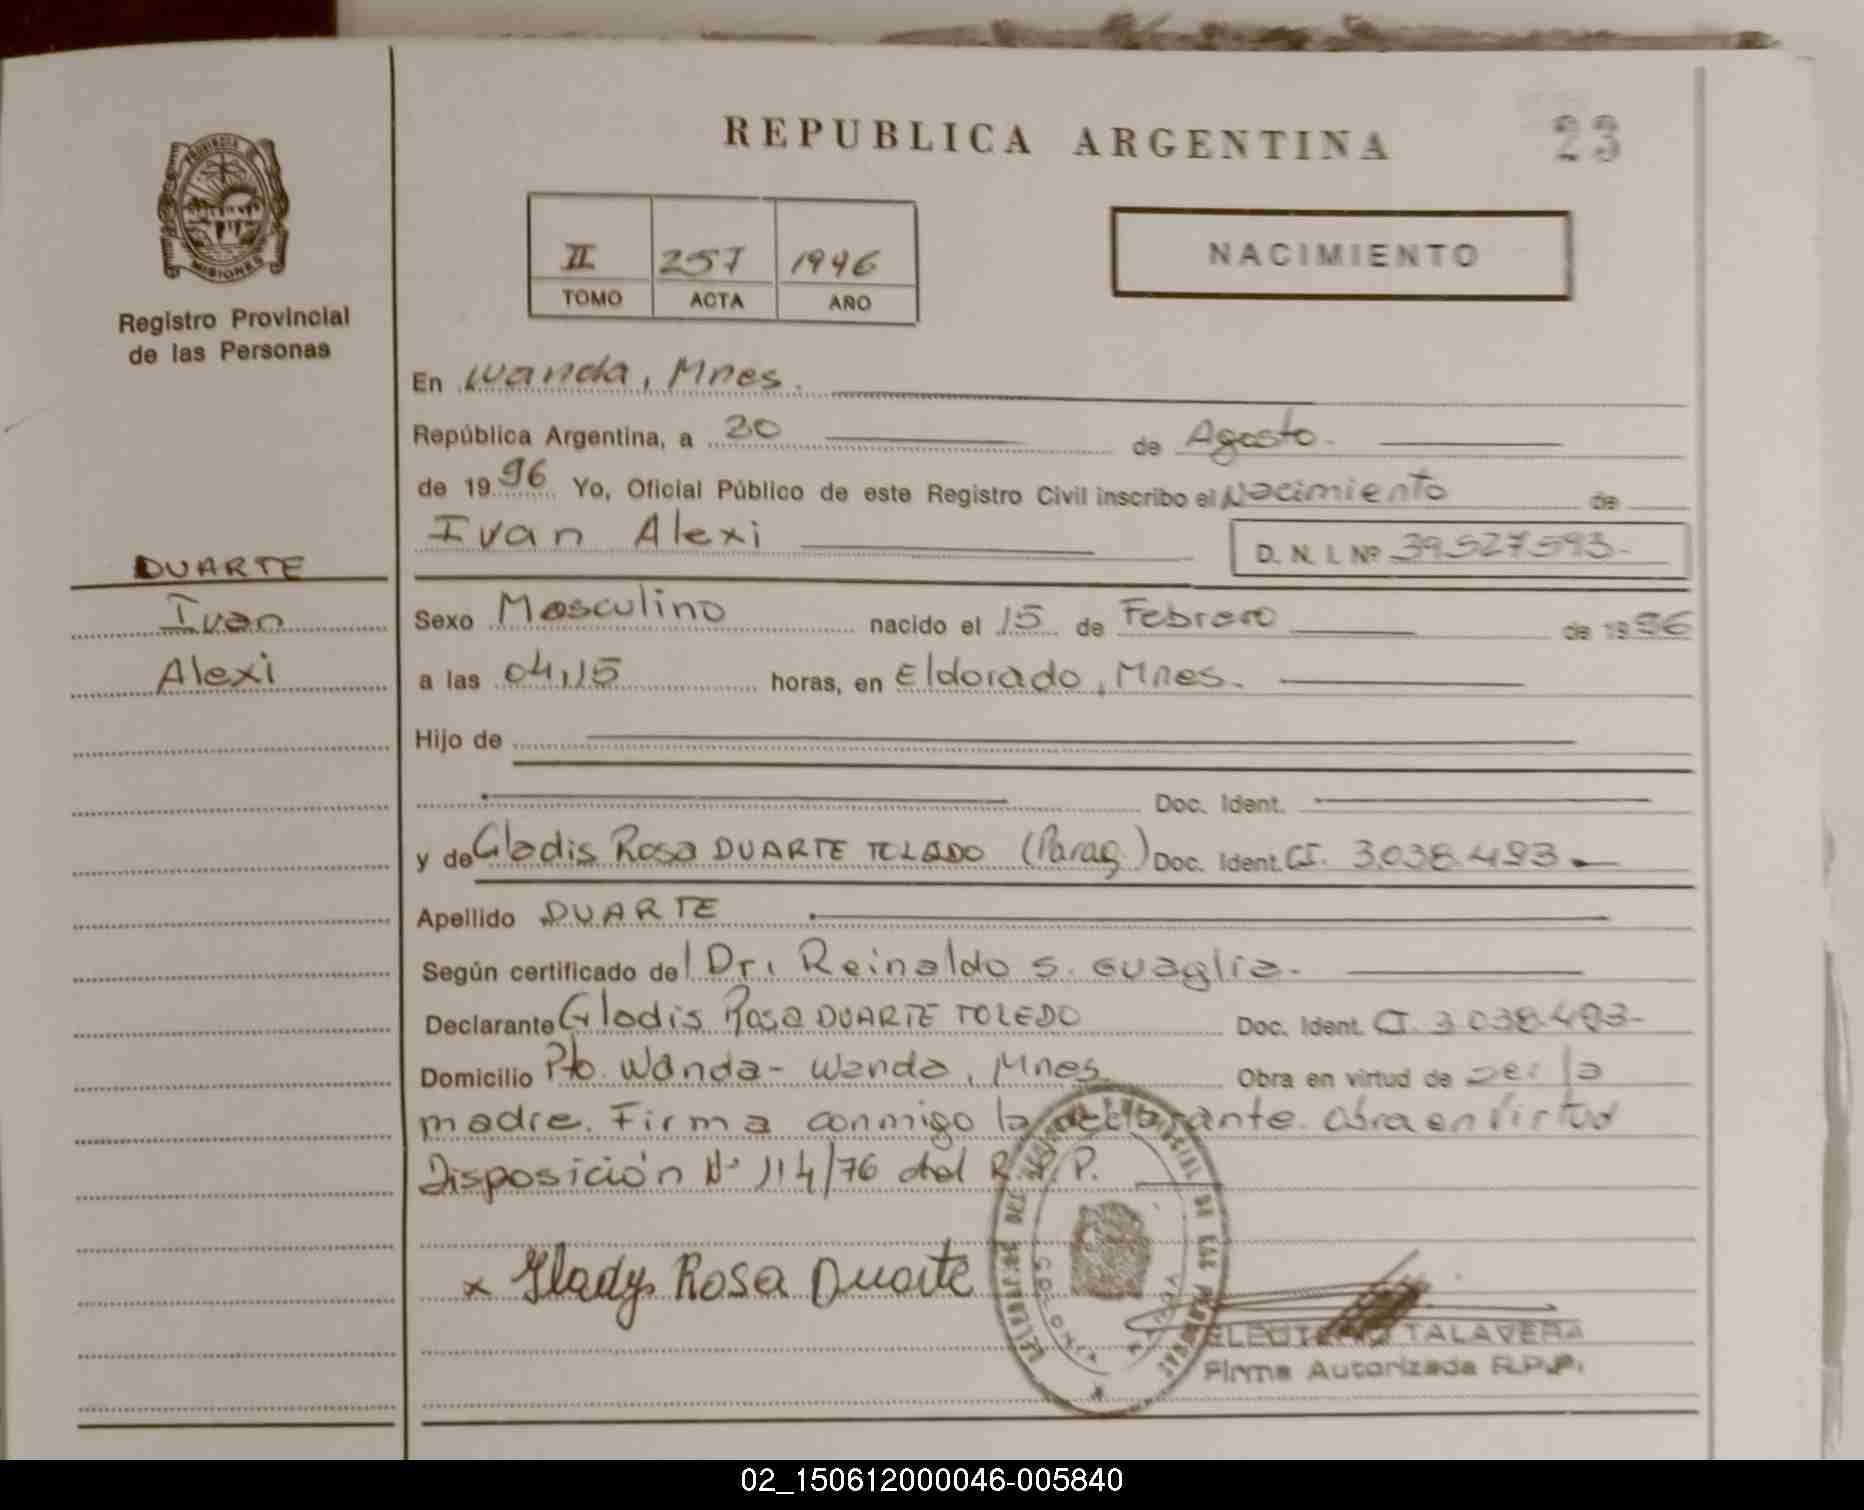 REPUBLICA ARGENTINA
23
PROVINCIA DE
MISIONES
Registro Provincial
de las Personas
II 257 1996
TOMO ACTA AÑO
NACIMIENTO
En Wanda, Mnes.
República Argentina, a 20 de Agosto.
de 1996 Yo, Oficial Público de este Registro Civil inscribo el Nacimiento de
Ivan Alexi
D. N. I. Nº 39.527.593-
DUARTE
Ivan
Alexi
Sexo Masculino nacido el 15 de Febrero de 1996
a las 04,15 horas, en Eldorado, Mnes.
Hijo de
Doc. Ident.
y de Gladis Rosa DUARTE TOLEDO (Parag.) Doc. Ident. CI. 3.038.493.
Apellido DUARTE
Según certificado del Dr. Reinaldo S. Guaglia.
Declarante Gladis Rosa DUARTE TOLEDO Doc. Ident. CI. 3.038.493-
Domicilio Pto. Wanda- Wanda, Mnes. Obra en virtud de ser la
madre. Firma conmigo la declarante. Obra en Virtud
Disposición Nº 114/76 del R.P.P.
x Gladys Rosa Duarte
ELEUTERIO TALAVERA
Firma Autorizada R.P.P.
02_150612000046-005840